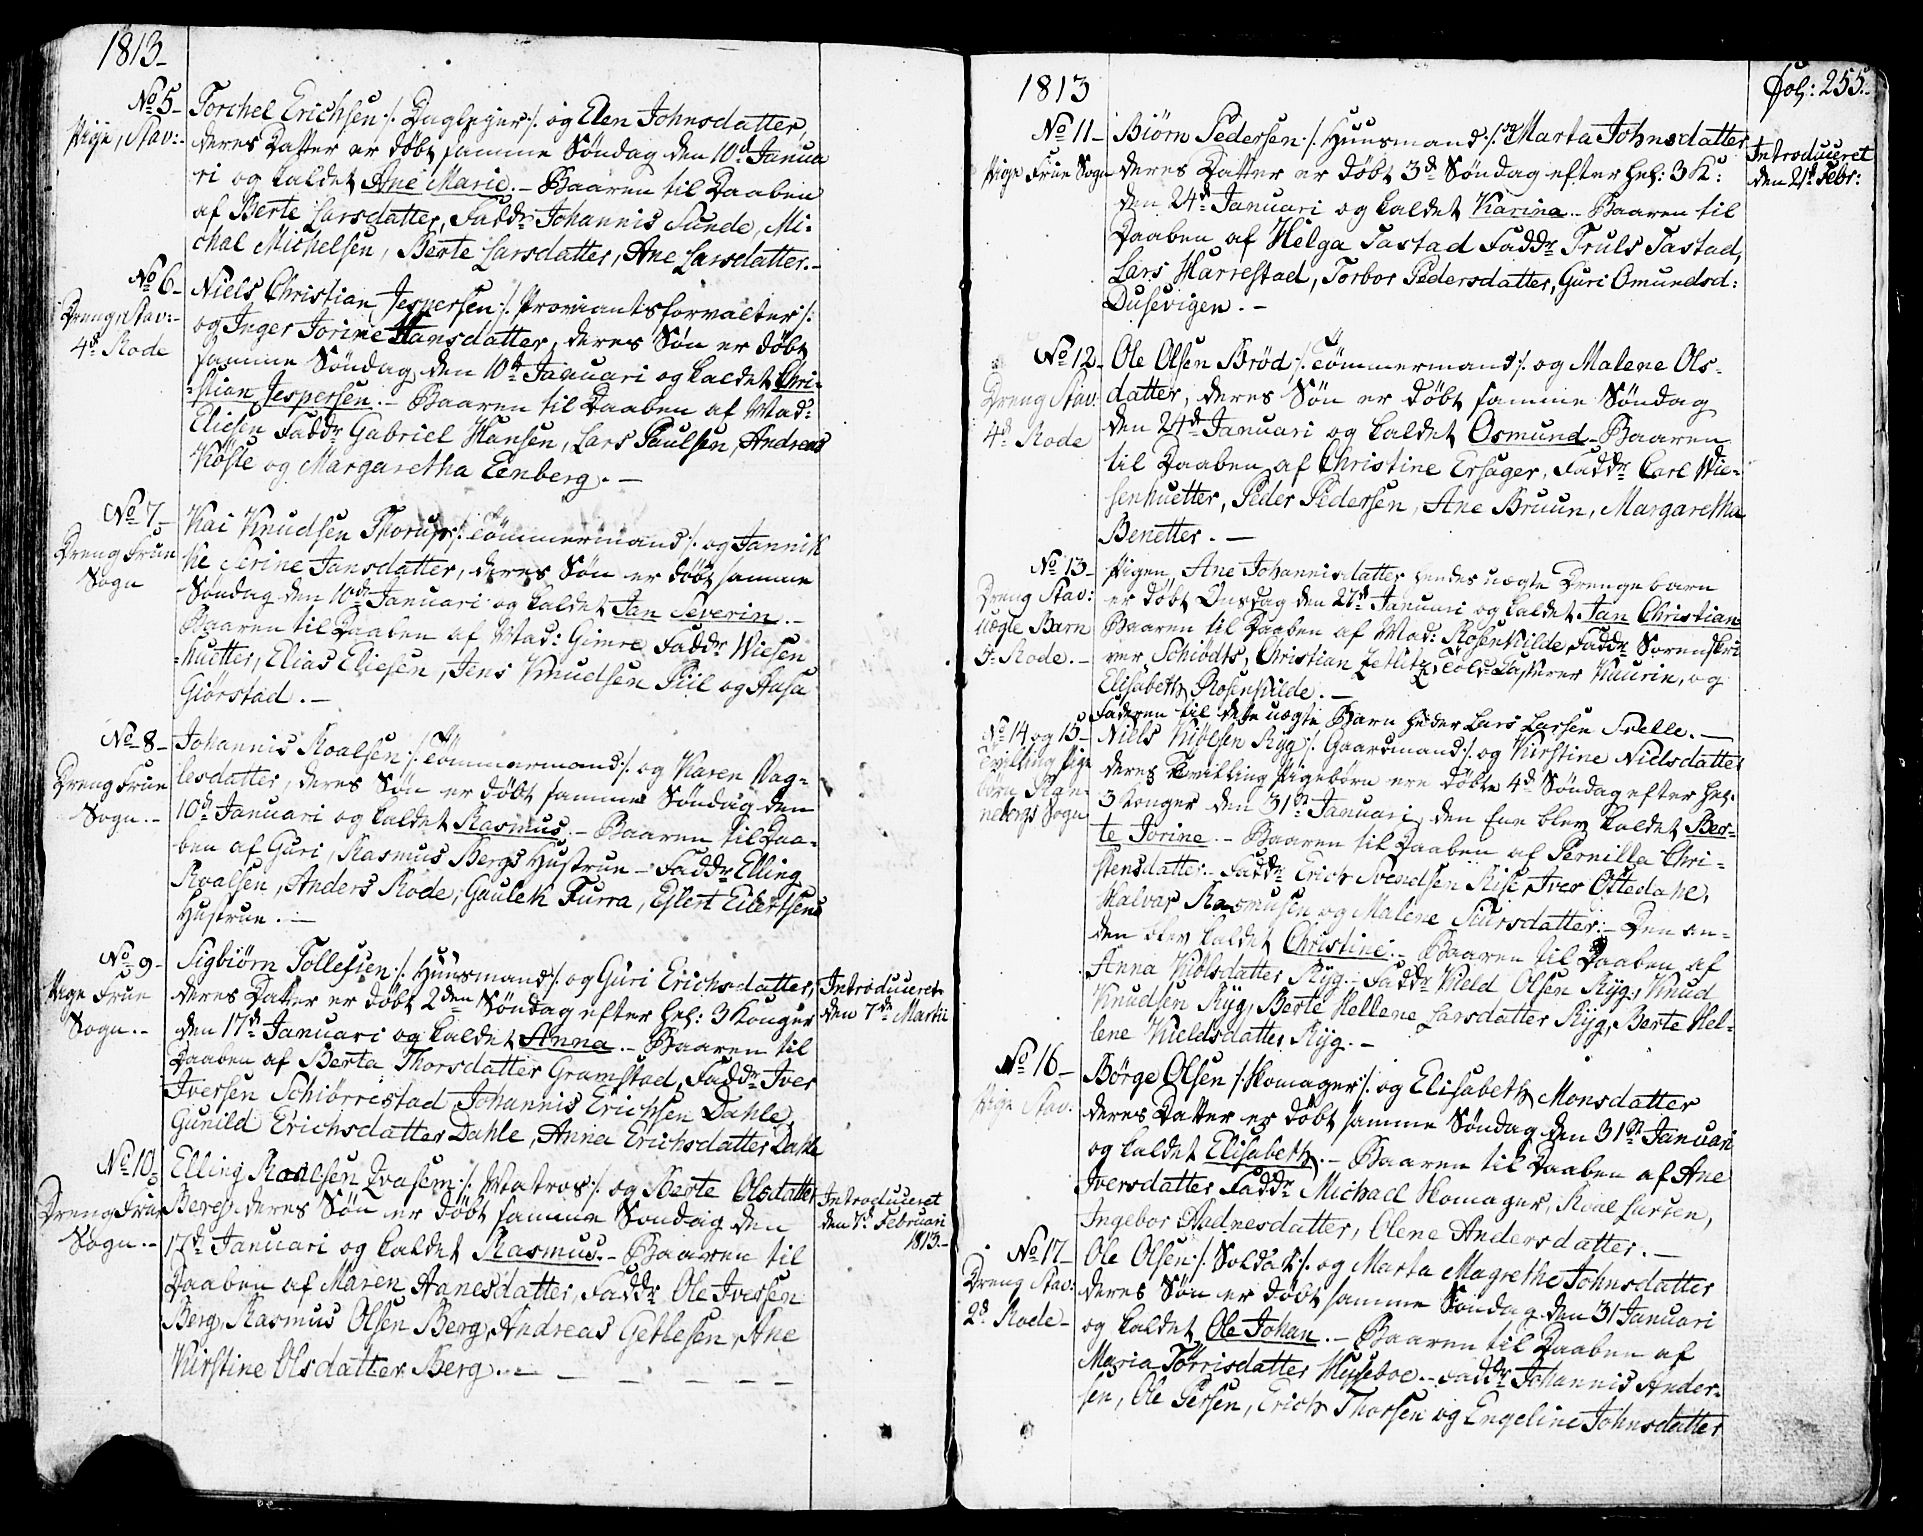 1813
No 5
Pige, Stav:
Torchel Erichsen /: Dagleyer :/ og Elen Johnsdatter,
deres Datter er døbt samme Søndag den 10d Janua
ri og kaldet Ane Marie. - Baaren til Daaben
af Berte Larsdatter, Faddr Johannis Sunde, Mi-
chal Michelsen, Berte Larsdatter, Ane Larsdatter. -
No 6
Dreng Stav:
4d Rode
Niels Christian Jespersen /: Proviantsforvalter :/
og Inger Jorine Hansdatter, deres Søn er døbt
samme Søndag den 10de Januari og kaldet Chri-
stian Jespersen. - Baaren til Daaben af Mad:
Eliesen Faddr Gabriel Hansen, Lars Paulsen, Andreas
Kösle og Margaretha Eenberg. -
No 7
Dreng Frue
Sogn
Kai Knudsen Thorup /: Tömmermand :/ og Jannik
ke Serine Jansdatter, deres Søn er døbt samme
Søndag den 10de Januari og kaldet Jan Severin. -
Baaren til Daaben af Mad: Gimre, Faddr Wiesen
huetter, Elias Eliesen, Jens Knudsen Piil og Aasa
Giörstad. -
No 8
Dreng Frue
Sogn. -
Johannis Roalsen /: Tömmermand :/ og Karen Dag-
lesdatter, deres Søn er døbt samme Søndag den
10d Januari og kaldet Rasmus. - Baaren til Daa-
ben af Guri, Rasmus Bergs Hustrue - Faddr Elling
Roalsen, Anders Rode, Gaulek Furra, Eilert Eilertsens
Hustrue. -
No 9
Pige Frue
Sogn. -
Sigbiörn Tollefsen /: Huusmand :/ og Guri Erichsdatter,
deres Datter er døbt 2den Søndag efter hel: 3 Konger
den 17de Januari og kaldet Anna. - Baaren til
Daaben af Berta Thorsdatter Gramstad, Faddr Iver
Iversen Schiörrestad Johannis Erichsen Dahle,
Gunild Erichsdatter Dahle, Anna Erichsdatter Dahle
Introduceret
den 7de Martii
No 10
Dreng Frue
Sogn. -
Elling Roalsen Qvasem /: Matros :/ og Berte Olsdatter
Berg, deres Søn er døbt samme Søndag den
17d Januari og kaldet Rasmus. - Baaren til
Daaben af Maren Hanesdatter, Faddr Ole Iversen
Berg, Rasmus Olsen Berg, Andreas Getlesen, Ane
Kirstine Olsdatter Berg. -
Introduceret
den 7d Februari
1813. -
1813
Fol: 255.
No 11
Pige Frue Sogn
Biörn Pedersen /: Huusmand :/ og Marta Johnsdatter
deres Datter er døbt 3d Søndag efter hel: 3 K:
den 24d Januari og kaldet Karina. - Baaren til
Daaben af Helga Tastad Faddr Truls Tastad,
Lars Harrestad, Torbor Pedersdatter, Guri Omundsd:
Dusevigen. -
Introduceret
den 21d Febr:
No 12
Dreng Stav:
4d Rode
Ole Olsen Brød /: Tömmermand :/ og Malene Ols-
datter, deres Søn er døbt samme Søndag
den 24d Januari og kaldet Osmund - Baaren
til Daaben af Christine Ersager, Faddr Carl Wie-
senhuetter, Peder Pedersen, Ane Bruun, Margaretha
Benetter. -
No 13
Dreng Stav:
uægte Barn
3 Rode. -
Pigen Ane Johannisdatter hendes uægte Drengebarn
er døbt Onsdag den 27d Januari og kaldet Jan Christian
Baaren til Daaben af Mad: Rosenkilde, Faddr Sorenskri
ver Schiödts, Christian Zetlitz, Told Casserer Kaurin, og
Elisabeth Rosenkilde. -
Faderen til dette uægte Barn heder Lars Larsen Svelle. -
No 14 og 15
Tvilling Pige
börn Ran-
nebergs Sogn
Niels Kiølsen Ryg /: Gaardmand :/ og Kirstine Nielsdatter
deres Tvilling Pigebörn ere døbte 4d Søndag efter hel.
3 Konger den 31st Januari, den Ene blev kaldet Ber-
te Jorine. - Baaren til Daaben af Pernilla Chri-
stensdatter - Faddr Erich Svendsen Rise, Iver Ottedahl,
Halvar Rasmusen og Malene Siursdatter. - Den an-
den blev kaldet Christine. - Baaren til Daaben af
Anna Kiölsdatter Ryg - Faddr Kield Olsen Ryg, Knud
Knudsen Ryg, Berte Hellene Larsdatter Ryg, Berte Hel-
lene Kieldsdatter Ryg. -
No 16
Pige Stav.
Börge Olsen /: Skomager :/ og Elisabeth Monsdatter
deres Datter er døbt samme Søndag den 31st Januari
og kaldet Elisabeth. - Baaren til Daaben af Ane
Iversdatter Faddr Michael Skomager, Roal Larsen,
Ingebor Aadnesdatter, Olene Andersdatter. -
No 17
Dreng Stav:
2d Rode
Ole Olsen /: Soldat :/ og Marta Magrethe Johnsdatter
deres Søn er døbt samme Søndag den 31 Januari
og kaldet Ole Johan. - Baaren til Daaben af
Maria Törrisdatter Huseboe. - Faddr Johannis Ander-
sen, Ole Persen, Erich Thorsen og Engeline Johnsdatter